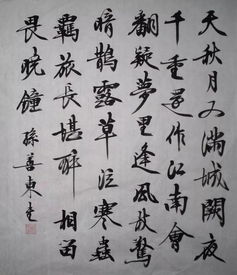 天秋月又滿城闕夜
千重還作江南會
翻疑夢里逢風枝驚
暗鵲露草泣寒蟲
羈旅長堪醉相留
畏曉鐘 孫善東